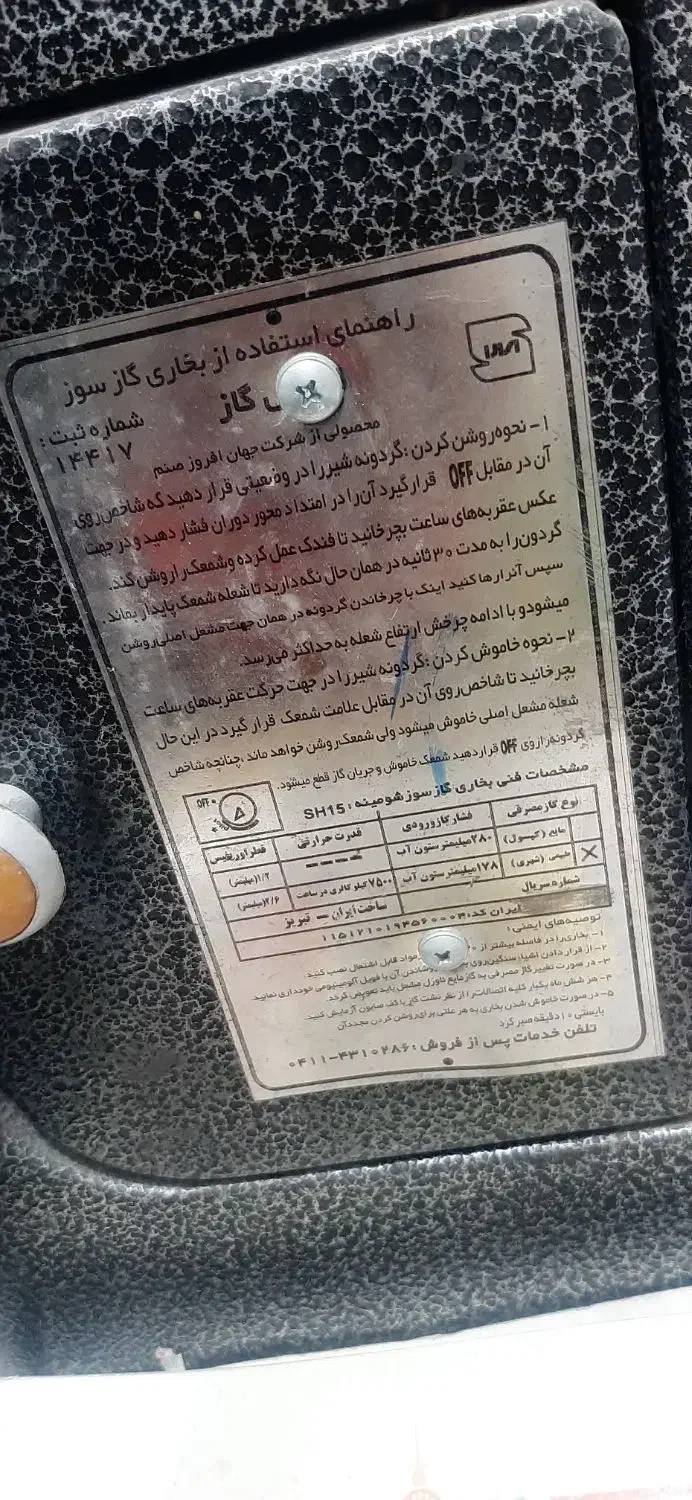 راهنمای استفاده از بخاری گاز سوز
گاز
شماره ثبت :
۱۴۴۱۷
محصولی از شرکت جهان افروز صنم
۱- نحوه روشن کردن : گردونه شیر را در وضعیتی قرار دهید که شاخص روی
آن در مقابل OFF قرار گیرد آن را در امتداد محور دوران فشار دهید و در جهت
عکس عقربه‌های ساعت بچرخانید تا فندک عمل کرده و شمعک را روشن کند.
گردون را به مدت ۳۰ ثانیه در همان حال نگه دارید تا شعله شمعک پایدار بماند.
سپس آنرا رها کنید اینک با چرخاندن گردونه در همان جهت مشعل اصلی روشن
میشود و با ادامه چرخش ارتفاع شعله به حداکثر می‌رسد.
۲- نحوه خاموش کردن : گردونه شیر را در جهت حرکت عقربه‌های ساعت
بچرخانید تا شاخص روی آن در مقابل علامت شمعک قرار گیرد در این حال
شعله مشعل اصلی خاموش میشود ولی شمعک روشن خواهد ماند ، چنانچه شاخص
گردونه را روی OFF قرار دهید شمعک خاموش و جریان گاز قطع میشود.
مشخصات فنی بخاری گاز سوز شومینه : SH15
OFF
نوع گاز مصرفی فشار گاز ورودی قدرت حرارتی قطر اوریفیس
مایع (کپسول) ۲۸۰ میلیمتر ستون آب ---- ۱/۲ (میلیمتر)
طبیعی (شهری) ۱۷۸ میلیمتر ستون آب ۷۵۰۰ کیلو کالری در ساعت ۲/۶ (میلیمتر)
شماره سریال ساخت ایران - تبریز
ایران کد: ۱۱۵۱۲۱۰۱۹۴۵۶۰۰۰۴
توصیه‌های ایمنی :
۱- بخاری را در فاصله بیشتر از مواد قابل اشتعال نصب کنید.
۲- از قرار دادن اشیاء سنگین روی پوشاندن آن با فویل آلومینیومی خودداری نمایید
۳- در صورت تغییر گاز مصرفی به گاز مایع نازل مشعل باید تعویض گردد
۴- هر شش ماه یکبار کلیه اتصالات را از نظر نشت گاز با کف صابون آزمایش کنید
۵- در صورت خاموش شدن بخاری به هر علتی برای روشن کردن مجدد آن
بایستی ۱۰ دقیقه صبر کرد
تلفن خدمات پس از فروش : ۰۴۱۱-۴۳۱۰۲۸۶